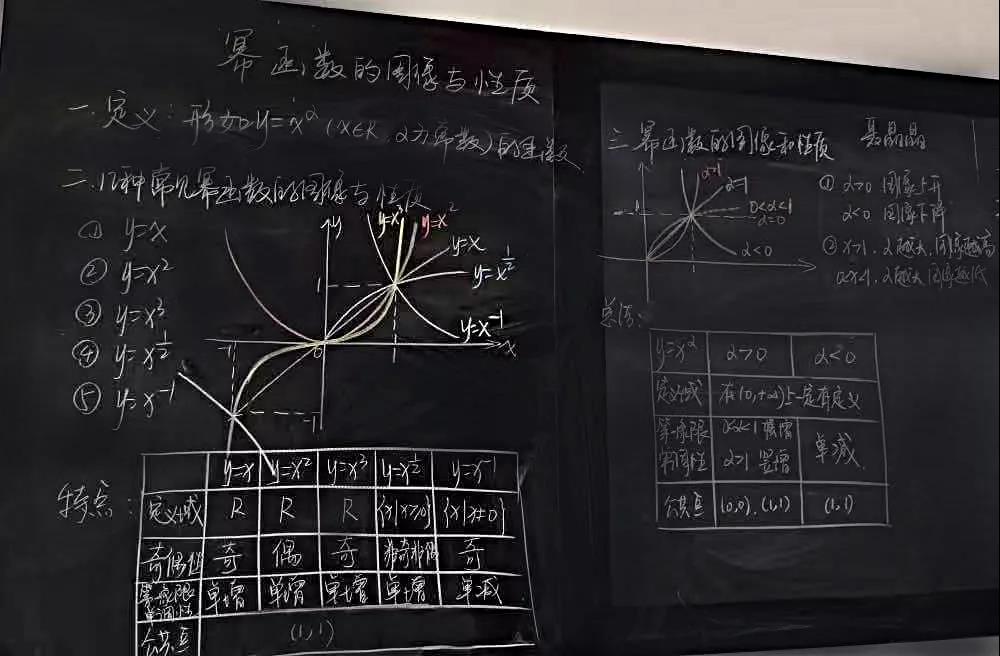 幂函数的图像与性质
一.定义:形如y=x^α(x∈R,α为常数)的函数
二.几种常见幂函数的图像与性质
① y=x
② y=x²
③ y=x³
④ y=x^{1/2}
⑤ y=x⁻¹
y
y=x³
y=x²
y=x
y=x^{1/2}
y=x⁻¹
x
1
-1
0
-1
特点:
y=x y=x² y=x³ y=x^{1/2} y=x⁻¹
定义域 R R R {x|x≥0} {x|x≠0}
奇偶性 奇 偶 奇 非奇非偶 奇
第一象限单调性 单增 单增 单增 单增 单减
公共点 (1,1)
三.幂函数的图像和性质 聂晶晶
α>1
α=1
0<α<1
α=0
α<0
① α>0 图像上升
α<0 图像下降
② x>1,α越大,图像越高
0<x<1,α越大 图像越低
总结:
y=x^α α>0 α<0
定义域 在(0,+∞)上一定有定义
第一象限 0<α<1 横增
α>1 竖增 单减
公共点 (0,0),(1,1) (1,1)